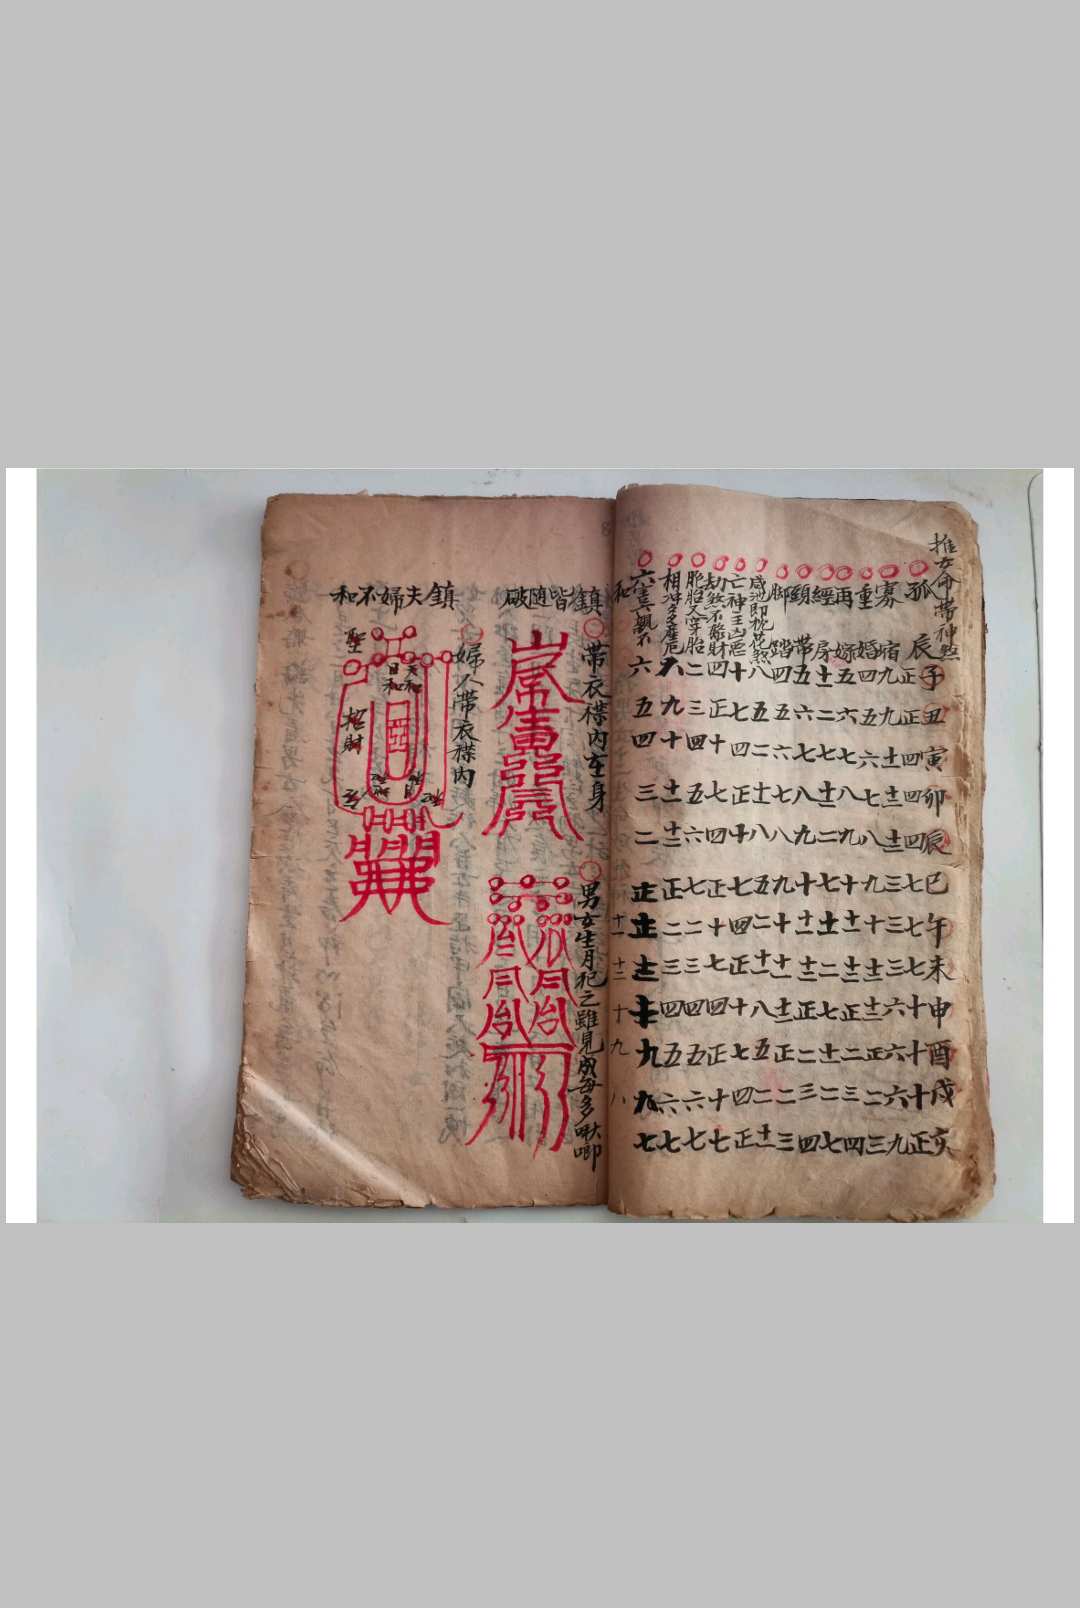 推女命帶神煞
子丑寅卯辰巳午未申酉戌亥
孤辰正正四四四七七七十十十正
寡宿九九十二十二十二三三三六六六九
重婚四五六七八九十十一十二正二三
再嫁五六七八九十十一十二正二三四
經房十二二七十二二七十二二七十二二七
頸帶五六七八九十十一十二正二三四
脚踏四五六七八九十十一十二正二三
咸池即桃花煞八五二十一八五二十一八五二十一
亡神主凶惡十七四正十七四正十七四正
劫煞不聚財四正十七四正十七四正十七
胞胎又穿胎二三四五六七二三四五六七
相冲多產危八九十十一十二正二三四五六七
六害親不六五四三二正
和十一十二十九八
鎮皆隨破
帶衣襟內在身
男女生月犯之雖見成每多啾唧
鎮夫婦不和
婦人帶衣襟內
天和
日和
聖
招財